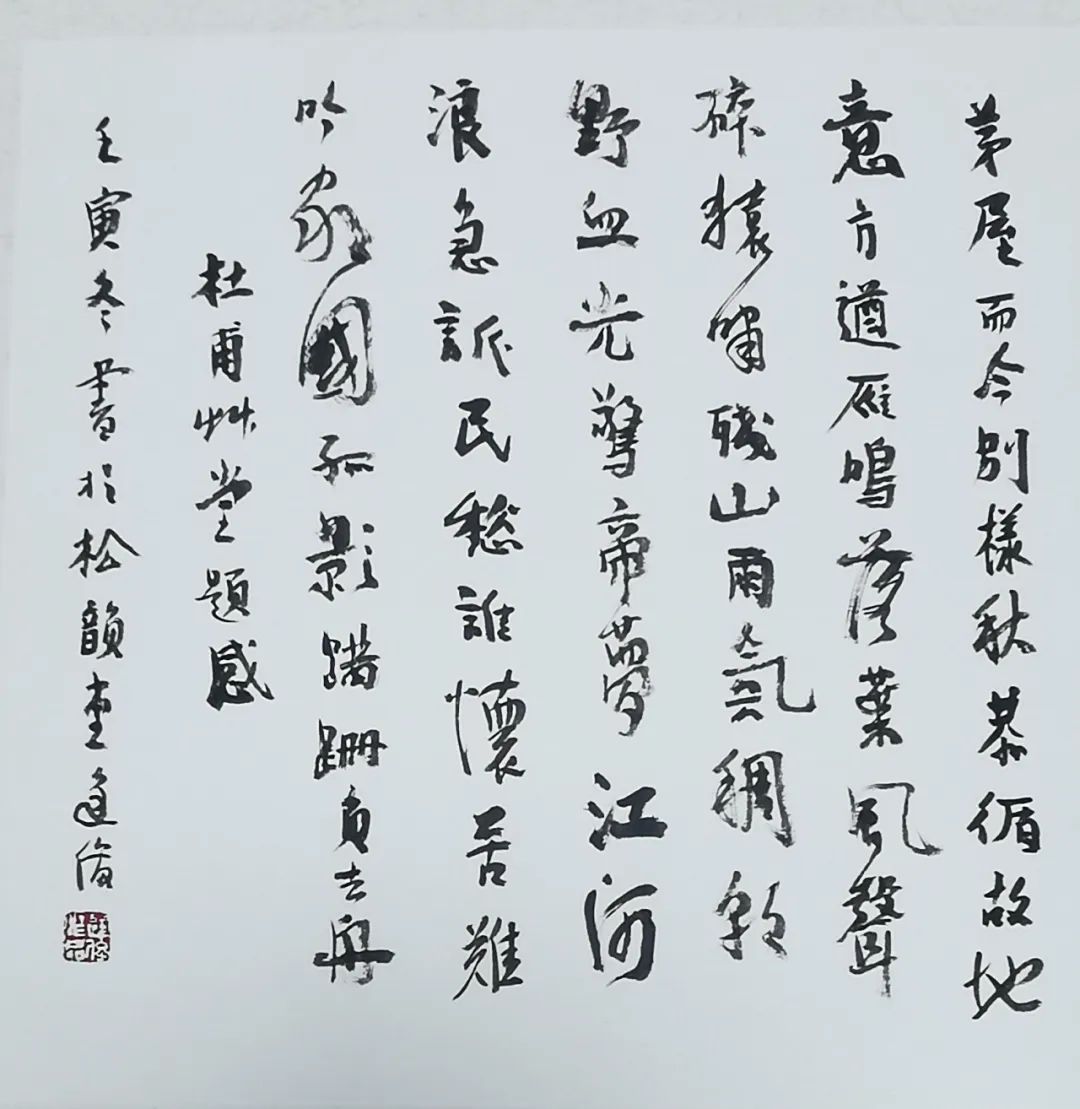 茅屋而今別樣秋恭循故地
意方遒雁鳴落葉風聲
碎猿嘯殘山雨氣稠朝
野血光驚帝夢江河
浪急訴民愁誰懷苦難
吟家國孤影蹣跚負去舟
杜甫艸堂題感
壬寅冬書於松韻堂